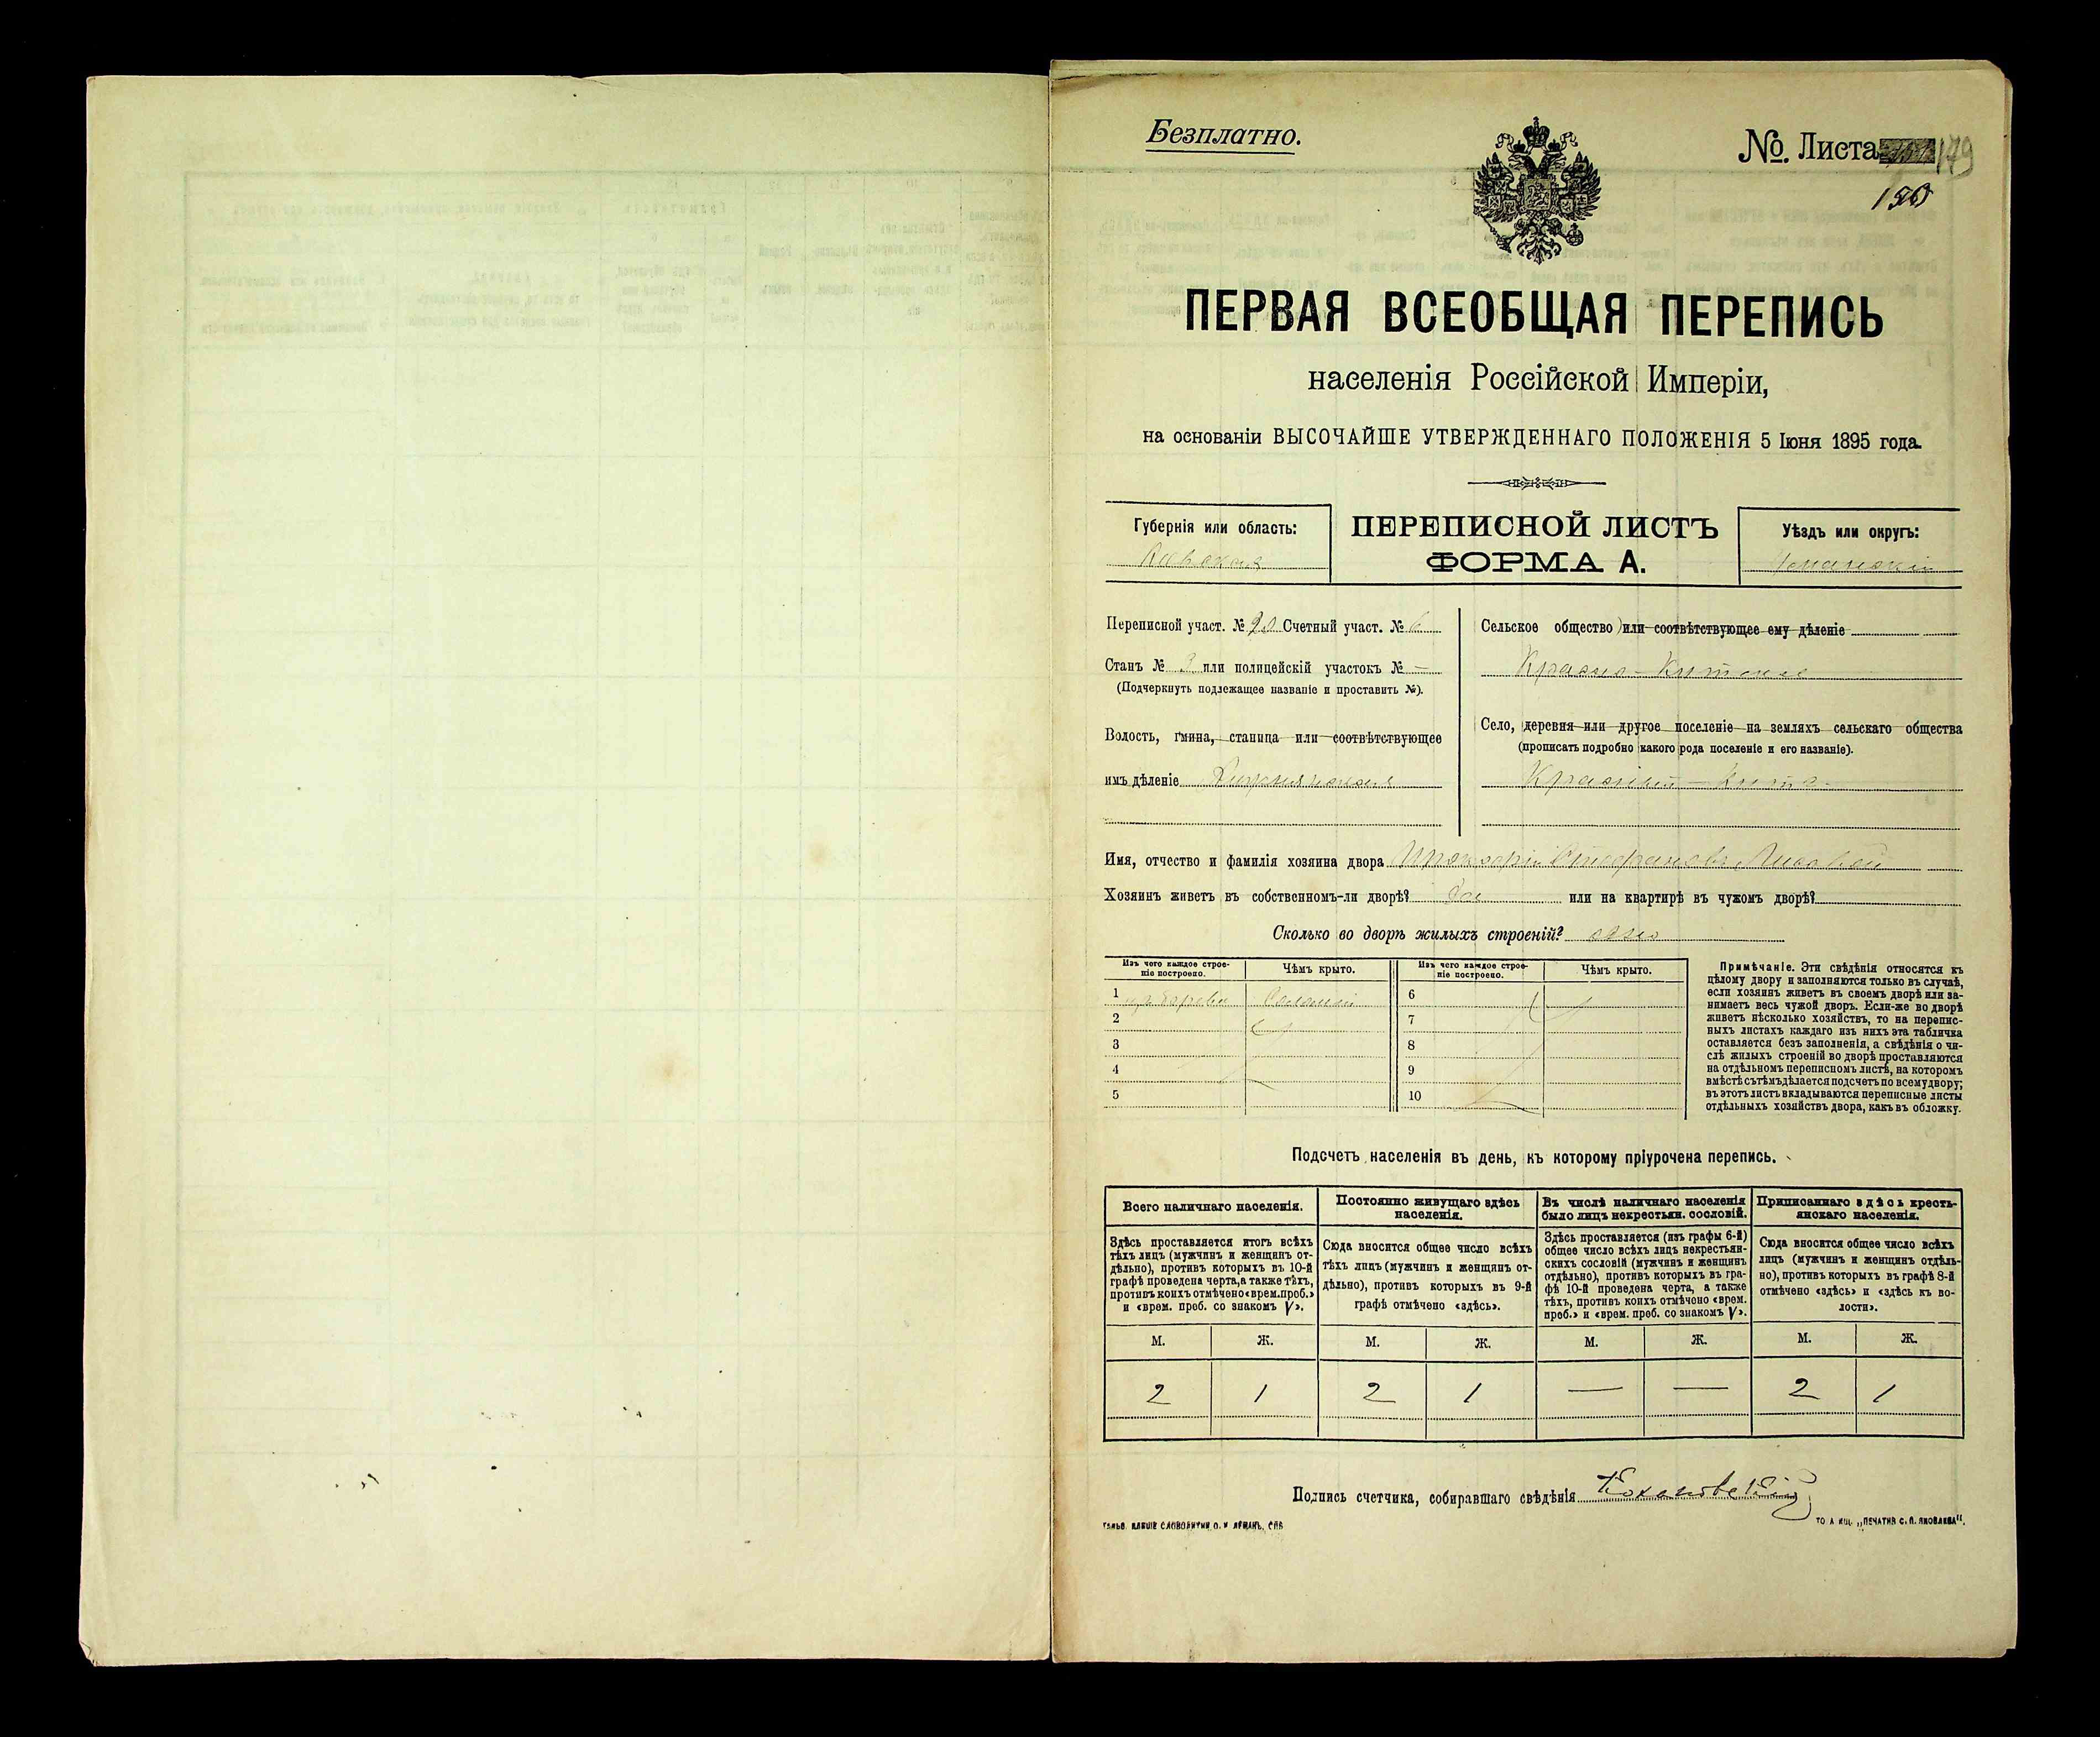 Безплатно.
№ Листа 179
ПЕРВАЯ ВСЕОБЩАЯ ПЕРЕПИСЬ
населенія Россійской Имперіи,
на основаніи ВЫСОЧАЙШЕ УТВЕРЖДЕННАГО ПОЛОЖЕНІЯ 5 Іюня 1895 года.
Губернія или область:
Кіевская
ПЕРЕПИСНОЙ ЛИСТЪ
ФОРМА А.
Уѣздъ или округъ:
Уманскій
Переписной участ. № Счетный участ. № 6
Станъ № 3 или полицейскій участокъ № —
(Подчеркнуть подлежащее названіе и проставить №).
Волость, гмина, станица или соотвѣтствующее
имъ дѣленіе
Сельское общество или соотвѣтствующее ему дѣленіе
Красно-Кутское
Село, деревня или другое поселеніе на земляхъ сельскаго общества
(прописать подробно какого рода поселеніе и его названіе).
Красный-Кутъ
Имя, отчество и фамилія хозяина двора Прокофій Стефановъ
Хозяинъ живетъ въ собственномъ-ли дворѣ? Да или на квартирѣ въ чужомъ дворѣ?
Сколько во дворѣ жилыхъ строеній? одно
Изъ чего каждое строе-
ніе построено.
Чѣмъ крыто.
Изъ чего каждое строе-
ніе построено.
Чѣмъ крыто.
1 изъ дерева Соломой
2
3
4
5
6
7
8
9
10
Примѣчаніе. Эти свѣдѣнія относятся къ
цѣлому двору и заполняются только въ случаѣ,
если хозяинъ живетъ въ своемъ дворѣ или за-
нимаетъ весь чужой дворъ. Если-же во дворѣ
живетъ нѣсколько хозяйствъ, то на перепис-
ныхъ листахъ каждаго изъ нихъ эта табличка
оставляется безъ заполненія, а свѣдѣнія о чи-
слѣ жилыхъ строеній во дворѣ проставляются
на отдѣльномъ переписномъ листѣ, на которомъ
вмѣстѣ съ тѣмъ дѣлается подсчетъ по всему двору;
въ этотъ листъ вкладываются переписные листы
отдѣльныхъ хозяйствъ двора, какъ въ обложку.
Подсчетъ населенія въ день, къ которому пріурочена перепись.
Всего наличнаго населенія.
Постоянно живущаго здѣсь
населенія.
Въ числѣ наличнаго населенія
было лицъ некрестьян. сословій.
Приписаннаго здѣсь кресть-
янскаго населенія.
Здѣсь проставляется итогъ всѣхъ
тѣхъ лицъ (мужчинъ и женщинъ от-
дѣльно), противъ которыхъ въ 10-й
графѣ проведена черта, а также тѣхъ,
противъ коихъ отмѣчено «врем. преб.»
и «врем. преб. со знакомъ V».
Сюда вносится общее число всѣхъ
тѣхъ лицъ (мужчинъ и женщинъ от-
дѣльно), противъ которыхъ въ 9-й
графѣ отмѣчено «здѣсь».
Здѣсь проставляется (изъ графы 6-й)
общее число всѣхъ лицъ некрестьян-
скихъ сословій (мужчинъ и женщинъ
отдѣльно), противъ которыхъ въ гра-
фѣ 10-й проведена черта, а также
тѣхъ, противъ коихъ отмѣчено «врем.
преб.» и «врем. преб. со знакомъ V».
Сюда вносится общее число всѣхъ
лицъ (мужчинъ и женщинъ отдѣль-
но), противъ которыхъ въ графѣ 8-й
отмѣчено «здѣсь» и «здѣсь къ во-
лости».
М. Ж. М. Ж. М. Ж. М. Ж.
2 1 2 1 — — 2 1
Подпись счетчика, собиравшаго свѣдѣнія Кохановскій